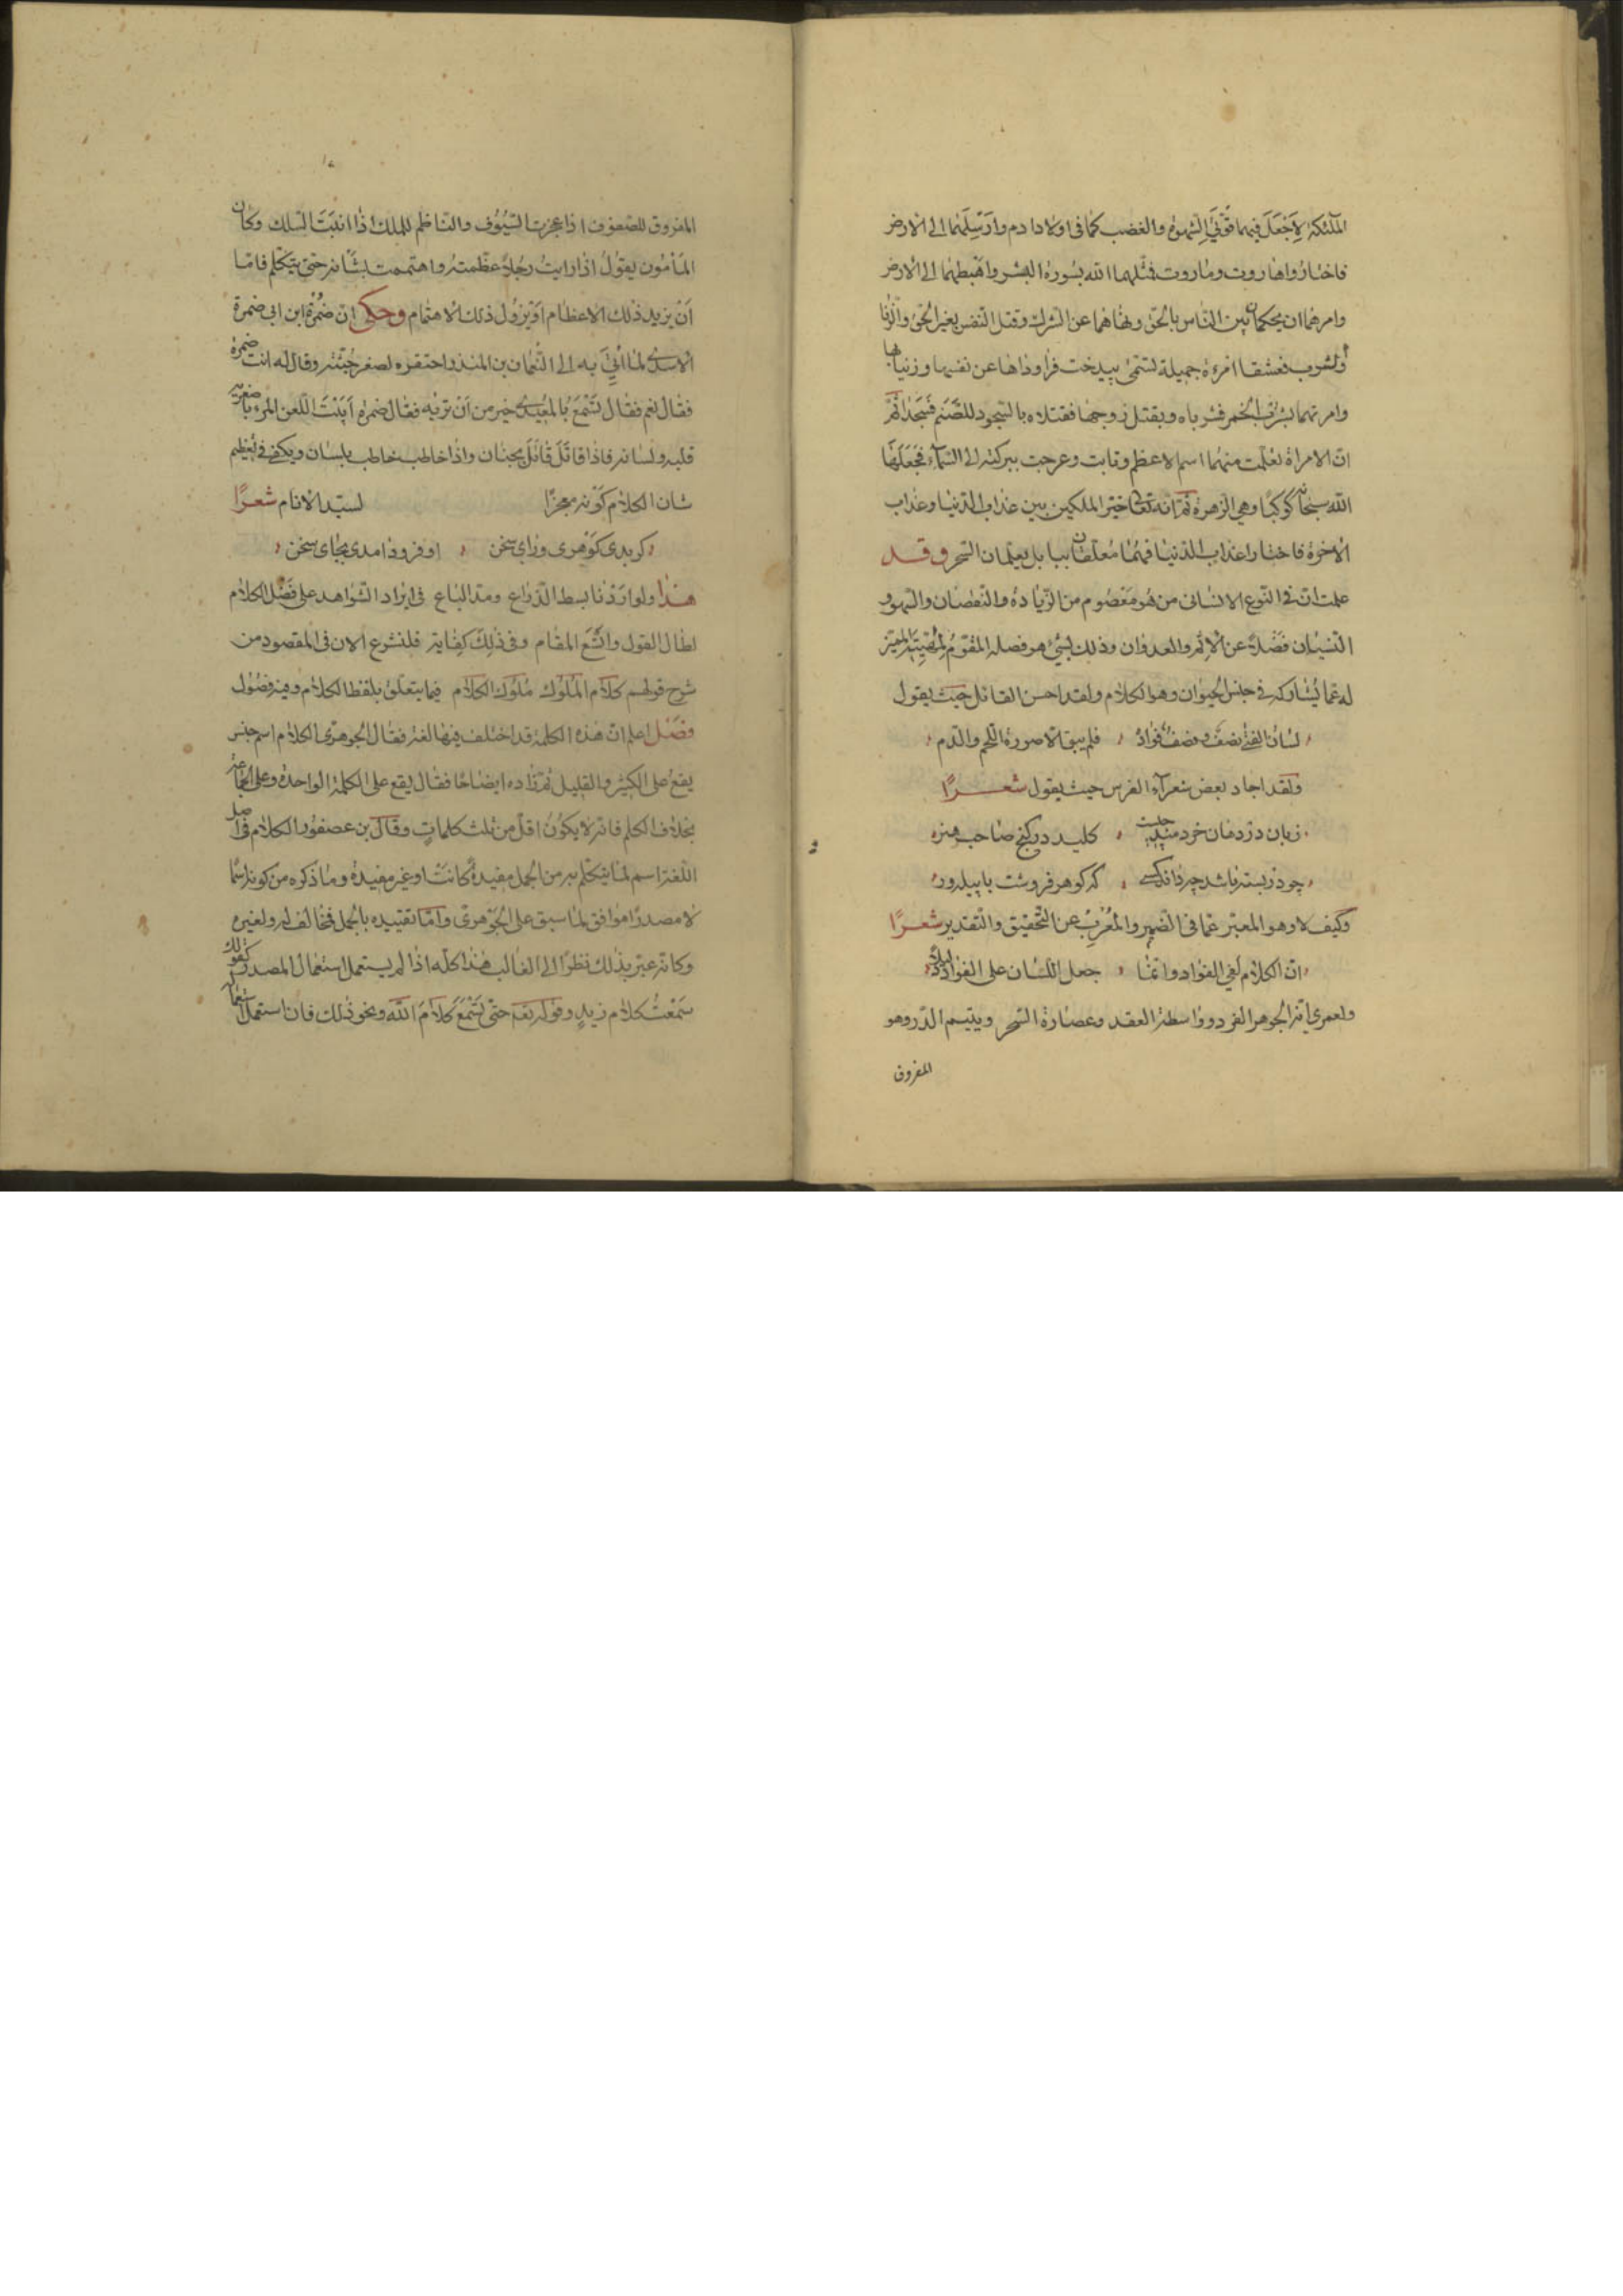 الملئكة لاجعل فيهما قوتي الشهوة والغضب كما في اولاد ادم وارسلهما الى الارض
فاختاروا هاروت وماروت فمثلهما الله بسورة البشر واهبطهما الى الارض
وامرهما ان يحكما بين الناس بالحق ونهاهما عن الشرك وقتل النفس بغير الحق والزنا
والشرب فعشقا امرءة جميلة تسمى بيدخت فراوداها عن نفسها وزنيا بها
وامرتهما بشرب الخمر فشرباه وبقتل زوجها فقتلاه بالسجود للصنم فسجدا ثم
ان الامراة تعلمت منهما اسم الاعظم وتابت وعرجت ببركته الى السماء فجعلها
الله سبحانه كوكبا وهي الزهرة ثم انه تعالى خير الملكين بين عذاب الدنيا وعذاب
الاخرة فاختارا عذاب الدنيا فهما معلقان ببابل يعلمان السحر وقد
علمت ان في النوع الانساني من هو معصوم من الزيادة والنقصان والسهو و
النسيان فضلا عن الاثم والعدوان وذلك لشيء هو فصله المقوم لمهيته المميز
له عما يشاركه في جنس الحيوان وهو الكلام ولقد احسن القائل حيث يقول
لسان الفتى نصف ونصف فؤاده فلم يبق الا صورة اللحم والدم
ولقد اجاد بعض شعراء الفرس حيث يقول شعرا
زبان در دهان خردمند چيست كليد در گنج صاحب هنر
چو در بسته باشد چه داند كسى كه گوهر فروشت يا پيله ور
وكيف لا وهو المعبر عما في الضمير والمعرب عن التحقيق والتقدير شعرا
ان الكلام لفي الفؤاد وانما جعل اللسان على الفؤاد دليلا
ولعمري انه الجوهر الفرد وواسطة العقد وعصارة السحر ويتيم الدر وهو
المفروق
المفروق للصفوف اذا عجزت السيوف والناظم للملك اذا انبت السلك وكان
المأمون يقول اذا رايت رجلا عظمته واهتممت بشانه حتى يتكلم فاما
أن يزيد ذلك الاعظام او يزول ذلك الاهتمام وحكى ان ضمرة ابن ابي ضمرة
الاسدي لما اتي به الى النعمان بن المنذر احتقره لصغر جثته وقال له انت ضمرة
فقال نعم فقال تسمع بالمعيدي خير من أن تريه فقال ضمرة ابيت اللعن المرء باصغريه
قلبه ولسانه فاذا قاتل قاتل بجنان واذا خاطب خاطب بلسان ويكفي في تعظيم
شان الكلام كونه معجزا لسيد الانام شعرا
كر بدى كوهرى وراى سخن او فرود امدى بجاى سخن
هذا ولو اردنا بسط الذراع ومد الباع في ايراد الشواهد على فضل الكلام
اطال القول واتسع المقام وفي ذلك كفاية فلنشرع الان في المقصود من
شرح قولهم كلام الملوك ملوك الكلام فيما يتعلق بلفظ الكلام وفيه فصول
فصل اعلم ان هذه الكلمة قد اختلف فيها لغة فقال الجوهري الكلام اسم جنس
يقع على الكثير والقليل ثم زاده ايضاحا فقال يقع على الكلمة الواحدة وعلى الجماعة
بخلاف الكلم فانه لا يكون اقل من ثلث كلمات وقال بن عصفور الكلام في اصل
اللغة اسم لما يتكلم به من الجمل مفيدة كانت او غير مفيدة وما ذكره من كونه اسما
لا مصدرا موافق لما سبق على الجوهري واما تقييده بالجمل فمخالف له ولغيره
وكانه عبر بذلك نظرا الى الغالب هذا كله اذا لم يستعمل استعمال المصدر كقولك
سمعت كلام زيد وقوله تعالى حتى تسمع كلام الله ونحو ذلك فان استعمل استعمال